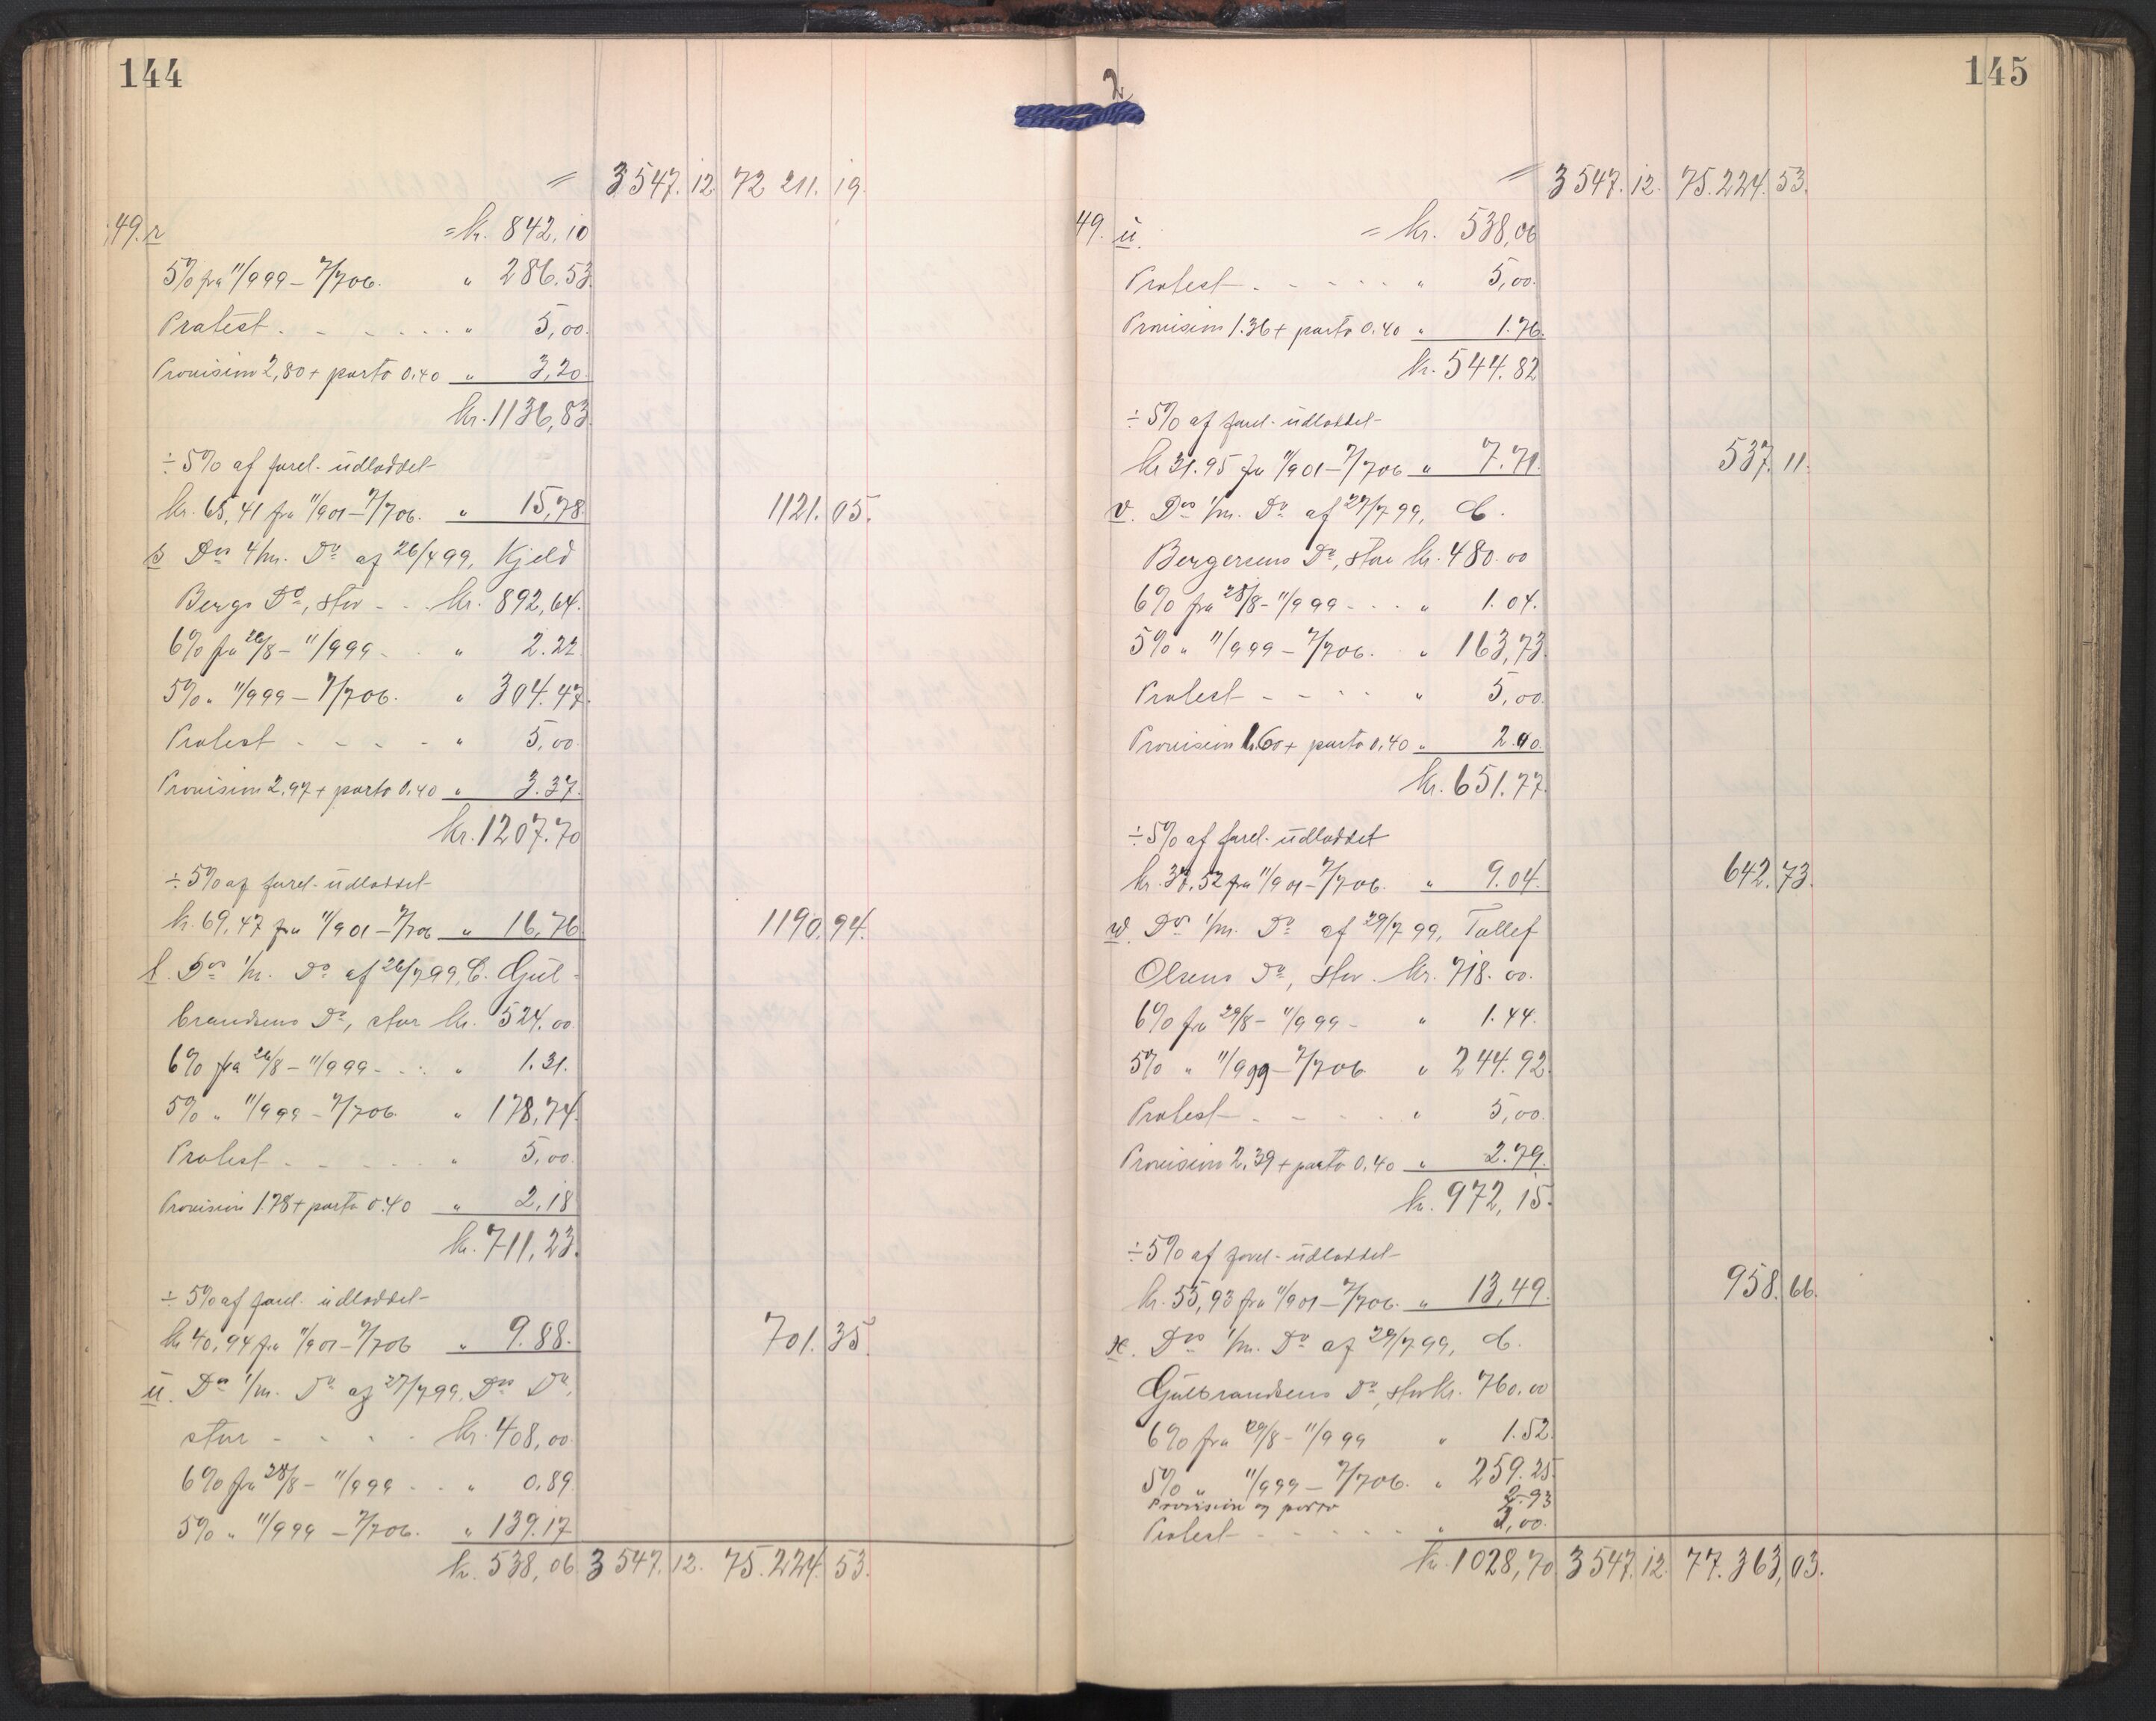 144
= 3547.12. 72 211.19.
49. r = kr. 842,10
5% fra 11/9 99 – 7/7 06. " 286.53.
Protest. - - - - " 5,00.
Provision 2,80 + porto 0.40 " 3,20.
kr. 1136,83.
÷ 5% af forel. udloddet
kr. 65,41 fra 11/9 01 – 7/7 06. " 15,78 1121.05.
s Ds 4/m. Do af 26/4 99, Kjeld
Bergs Do, stor - - kr. 892,64.
6% fra 26/8 – 11/9 99 - - " 2.22.
5% " 11/9 99 – 7/7 06. " 304.47.
Protest - - - - " 5,00.
Provision 2.97 + porto 0.40 " 3.37.
kr. 1207.70
÷ 5% af forel. udloddet
kr. 69,47 fra 11/9 01 – 7/7 06 " 16,76 1190.94.
t. Ds 1/m. Do af 26/7 99, C. Gul-
brandsens Do, stor kr. 524.00
6% fra 26/8 – 11/9 99 - - - " 1.31.
5% " 11/9 99 – 7/7 06. " 178,74.
Protest - - - - " 5,00.
Provision 1.78 + porto 0.40 " 2,18
kr. 711,23.
÷ 5% af forel. udloddet
kr. 40,94 fra 11/9 01 – 7/7 06 " 9.88. 701.35.
u. Ds 1/m. Do af 27/7 99, Ds Do,
stor - - - - kr. 408,00.
6% fra 28/8 – 11/9 99 - - " 0,89.
5% " 11/9 99 – 7/7 06. " 139.17
kr. 538,06. 3547.12. 75.224.53.
2
145
= 3547.12. 75.224.53.
49. u. = kr. 538,06
Protest - - - - " 5,00.
Provision 1.36 + porto 0.40 " 1.76.
kr. 544.82
÷ 5% af forel. udloddet
kr 31.95 fra 11/9 01 – 7/7 06 " 7.71. 537.11.
v. Ds 1/m. Do af 27/7 99, C.
Bergersens Do, stor kr. 480.00
6% fra 28/8 – 11/9 99 - - - " 1.04.
5% " 11/9 99 – 7/7 06. " 163,73.
Protest - - - - " 5,00.
Provision 1.60 + porto 0,40 " 2.00.
kr. 651.77.
÷ 5% af forel. udloddet
kr. 37,52 fra 11/9 01 – 7/7 06. " 9.04. 642.73.
w. Ds 1/m. Do af 29/7 99, Tollef
Olsens Do, stor. kr. 718.00.
6% fra 29/8 – 11/9 99 - " 1.44.
5% " 11/9 99 – 7/7 06 " 244.92.
Protest - - - - " 5,00.
Provision 2,39 + porto 0,40 " 2.79.
kr. 972,15.
÷ 5% af forel. udloddet
kr. 55,93 fra 11/9 01 – 7/7 06. " 13,49. 958.66.
x. Ds 1/m. Do af 29/7 99, C.
Gulbrandsens Do, stor kr. 760.00
6% fra 29/8 – 11/9 99 " 1.52.
5% " 11/9 99 – 7/7 06. " 259.25.
Provision og porto 2.93
Protest - - - - - " 5,00.
kr. 1028,70 3547.12. 77.363,03.